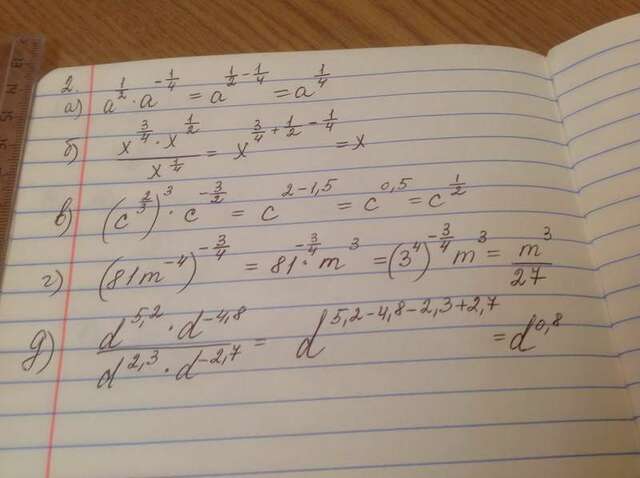 2.
а) a^{1/2} · a^{-1/4} = a^{1/2 - 1/4} = a^{1/4}
б) (x^{3/4} · x^{1/2}) / x^{1/4} = x^{3/4 + 1/2 - 1/4} = x
в) (c^{2/3})^3 · c^{-3/2} = c^{2-1,5} = c^{0,5} = c^{1/2}
г) (81m^{-4})^{-3/4} = 81^{-3/4} · m^3 = (3^4)^{-3/4} m^3 = m^3 / 27
д) (d^{5,2} · d^{-4,8}) / (d^{2,3} · d^{-2,7}) = d^{5,2-4,8-2,3+2,7} = d^{0,8}